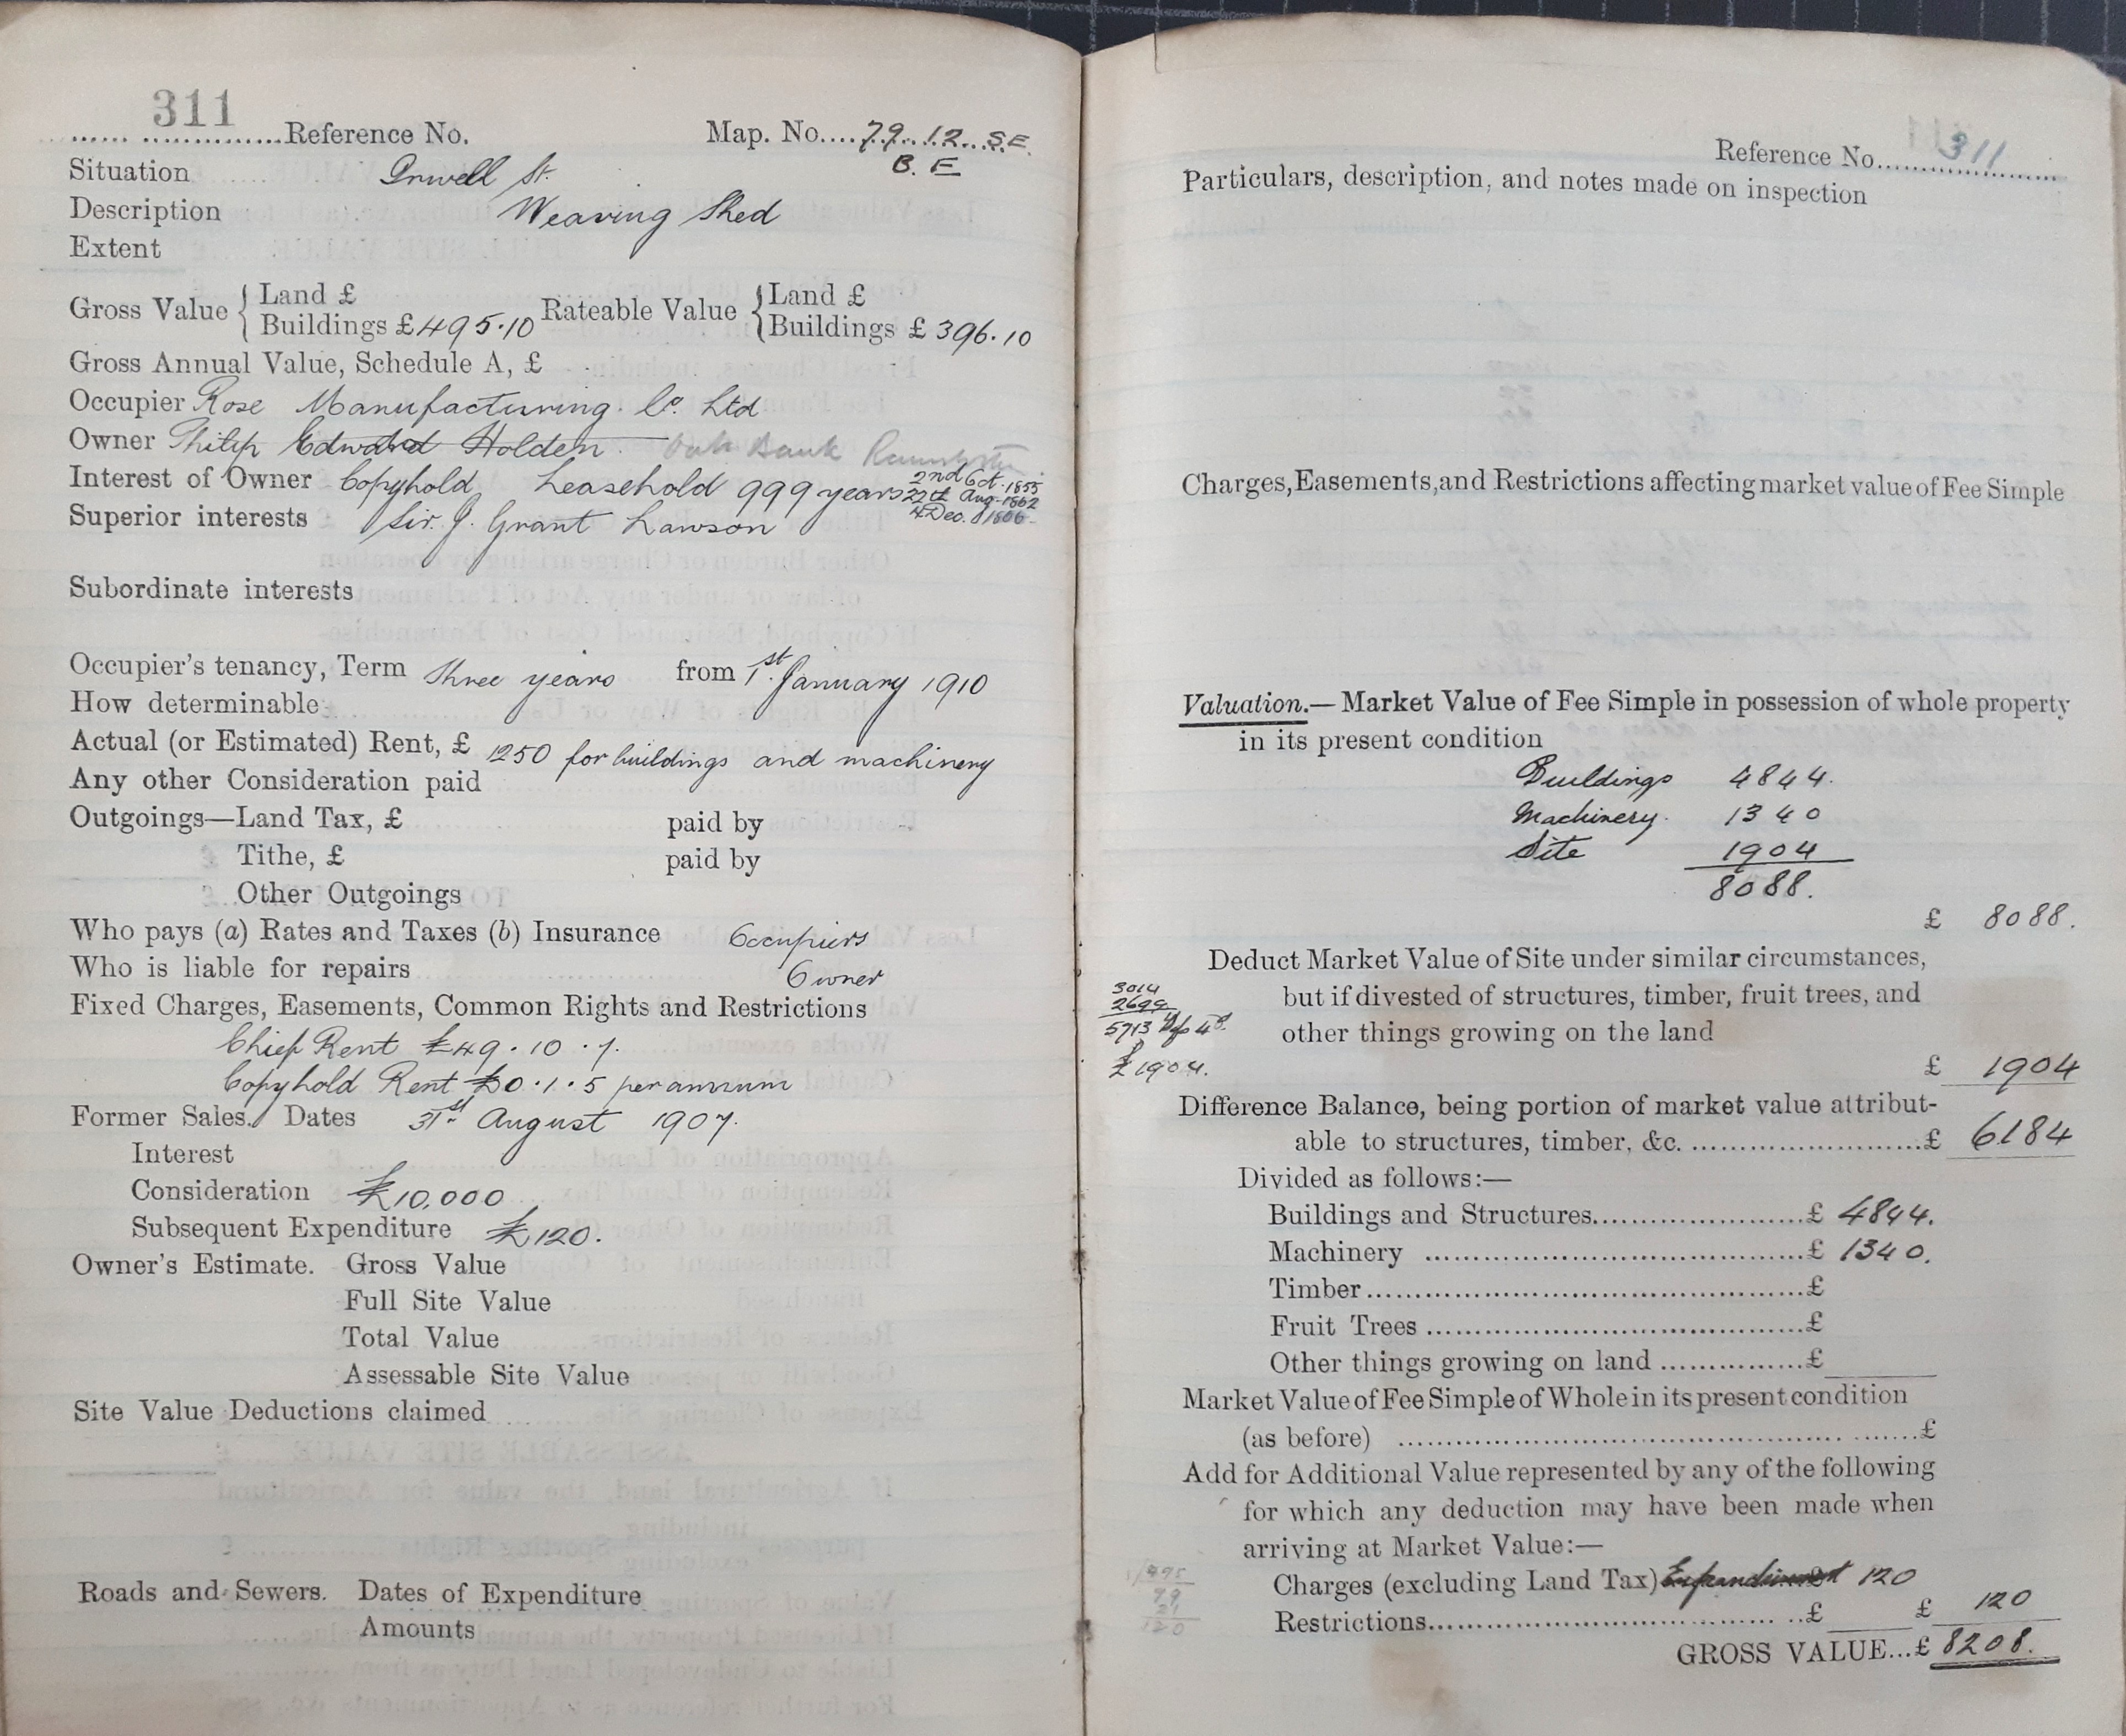 311
...... ...............Reference No. Map. No....79..12...S.E.
B. E
Situation Irwell St.
Description Weaving Shed
Extent
Gross Value { Land £ Rateable Value { Land £
Buildings £495.10 Buildings £ 396.10
Gross Annual Value, Schedule A, £
Occupier Rose Manufacturing. Co. Ltd
Owner Philip Edward Holden. Bank
Interest of Owner Copyhold Leasehold 999 years 2nd Oct. 1855
22th Aug. 1862
4 Dec. 1806
Superior interests Sir. J. Grant Lawson
Subordinate interests
Occupier's tenancy, Term three years from 1st January 1910
How determinable
Actual (or Estimated) Rent, £ 1250 for buildings and machinery
Any other Consideration paid
Outgoings—Land Tax, £ paid by
Tithe, £ paid by
Other Outgoings
Who pays (a) Rates and Taxes (b) Insurance Occupiers
Who is liable for repairs Owner
Fixed Charges, Easements, Common Rights and Restrictions
Chief Rent £49.10.7.
Copyhold Rent £0.1.5 per annum
Former Sales. Dates 31st August 1907.
Interest
Consideration £10,000
Subsequent Expenditure £120.
Owner's Estimate. Gross Value
Full Site Value
Total Value
Assessable Site Value
Site Value Deductions claimed
Roads and Sewers. Dates of Expenditure
Amounts
Reference No.....311
Particulars, description, and notes made on inspection
Charges, Easements, and Restrictions affecting market value of Fee Simple
Valuation.— Market Value of Fee Simple in possession of whole property
in its present condition
Buildings 4844.
Machinery. 1340
Site 1904
8088.
£ 8088.
Deduct Market Value of Site under similar circumstances,
but if divested of structures, timber, fruit trees, and
other things growing on the land
3014
2699
5713
£1904.
£ 1904
Difference Balance, being portion of market value attribut-
able to structures, timber, &c. ........................£ 6184
Divided as follows:—
Buildings and Structures.....................£ 4844.
Machinery .....................................£ 1340.
Timber...........................................£
Fruit Trees .....................................£
Other things growing on land ..............£
Market Value of Fee Simple of Whole in its present condition
(as before) ......................................................£
Add for Additional Value represented by any of the following
for which any deduction may have been made when
arriving at Market Value:—
Charges (excluding Land Tax) 120
Restrictions.................................£ £ 120
GROSS VALUE...£ 8208.